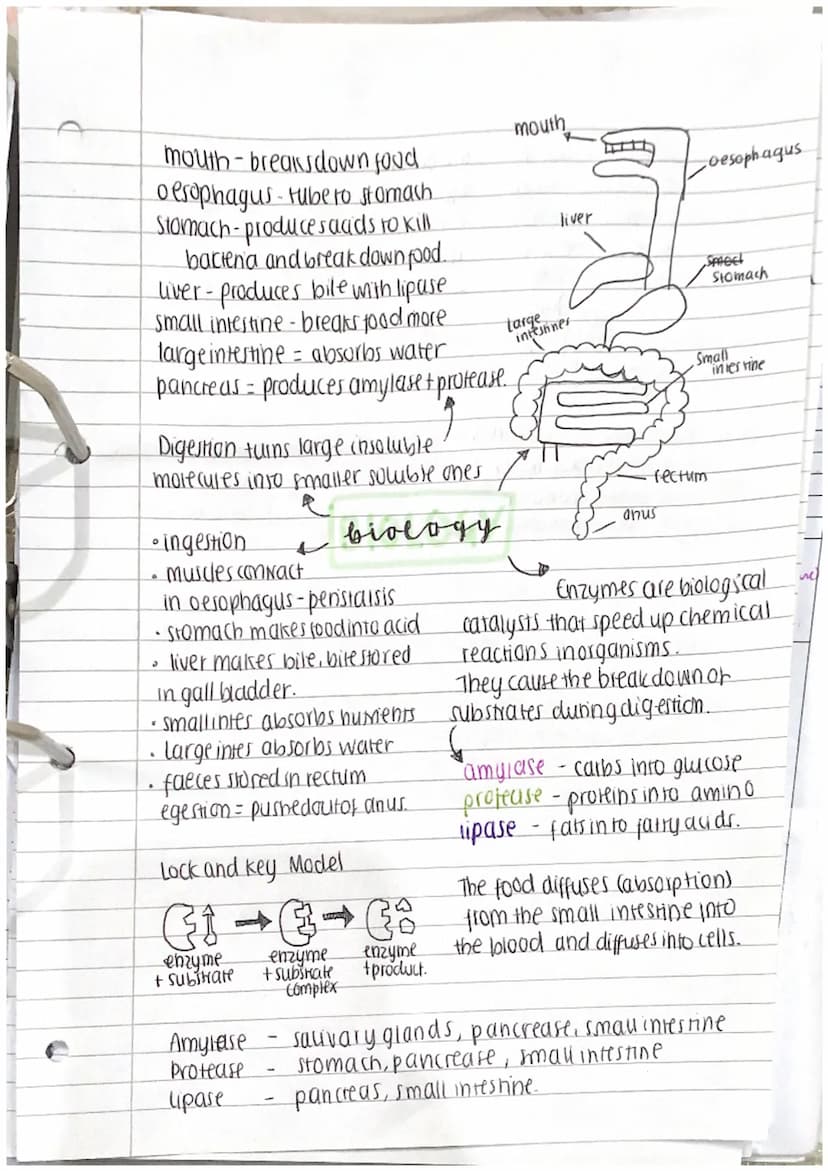 mouth - breaks down food
oesophagus - tube to stomach
stomach - produces acids to kill
bacteria and break down food.
liver - produces bile with lipase
small intestine - breaks food more
large intestine = absorbs water
pancreas = produces amylase + protease.
mouth
oesophagus
liver
stomach
large
intestines
small
intestine
rectum
anus
Digestion turns large insoluble
molecules into smaller soluble ones
biology
• ingestion
• muscles contract
in oesophagus - peristalsis
• stomach makes food into acid
• liver makes bile, bile stored
in gall bladder.
• small intes absorbs nutrients
• large intes absorbs water
• faeces stored in rectum
egestion = pushed out of anus.
Enzymes are biological
catalysts that speed up chemical
reactions in organisms.
They cause the breakdown of
substrates during digestion.
amylase - carbs into glucose
protease - proteins into amino
lipase - fats into fatty acids.
Lock and key Model
enzyme
+ substrate
enzyme
+ substrate
complex
enzyme
+ product.
The food diffuses (absorption)
from the small intestine into
the blood and diffuses into cells.
Amylase - salivary glands, pancrease, small intestine
Protease - stomach, pancrease, small intestine
lipase - pancreas, small intestine.